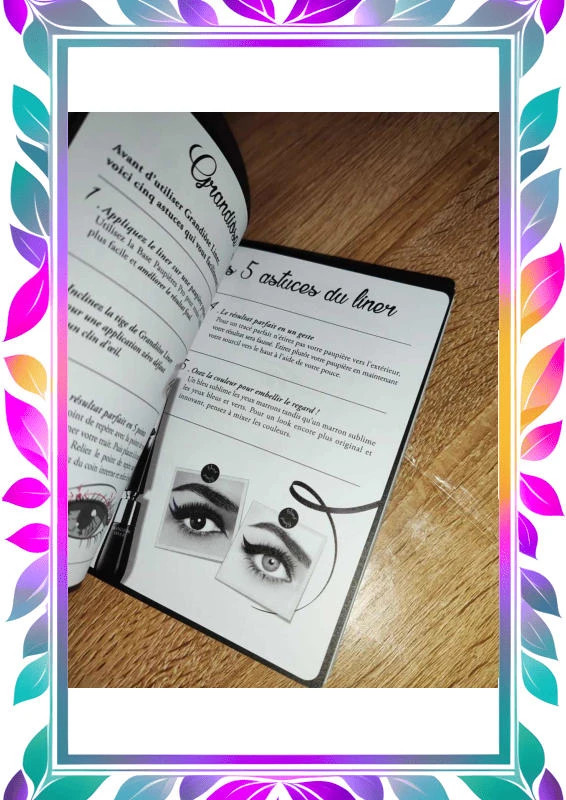 Grandiôse
Avant d'utiliser Grandiôse Liner,
voici cinq astuces qui vous
1. Appliquez le liner sur une paupière
Utilisez la Base Paupières Pro pour
plus facile et améliorer le résultat final.
Inclinez la tige de Grandiôse Liner
pour une application zéro défaut
un clin d'œil.
résultat parfait en 5 points
point de repère avec la pointe
votre trait. Puis
Reliez le point de repère
du coin interne et
5 astuces du liner
4. Le résultat parfait en un geste
Pour un tracé parfait n'étirez pas votre paupière vers l'extérieur,
votre résultat sera faussé. Étirez plutôt votre paupière en maintenant
votre sourcil vers le haut à l'aide de votre pouce.
5. Osez la couleur pour embellir le regard !
Un bleu sublime les yeux marrons tandis qu'un marron sublime
les yeux bleus et verts. Pour un look encore plus original et
innovant, pensez à mixer les couleurs.